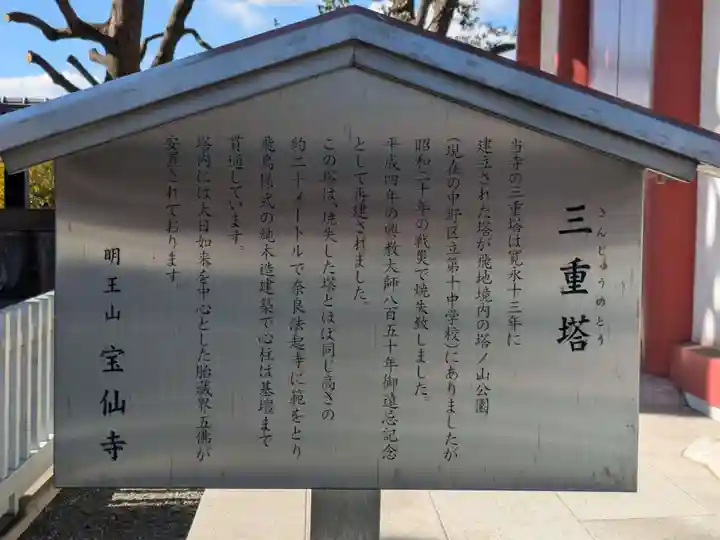 三重塔
さんじゅうのとう
当寺の三重塔は寛永十三年に
建立された塔が飛地境内の塔ノ山公園
(現在の中野区立第十中学校)にありましたが
昭和二十年の戦災で焼失致しました。
平成四年の興教大師八百五十年御遠忌記念
として再建されました。
この塔は、焼失した塔とほぼ同じ高さの
約二十メートルで奈良法起寺に範をとり
飛鳥様式の純木造建築で心柱は基壇まで
貫通しています。
塔内には大日如来を中心とした胎蔵界五佛が
安置されております
明王山 宝仙寺